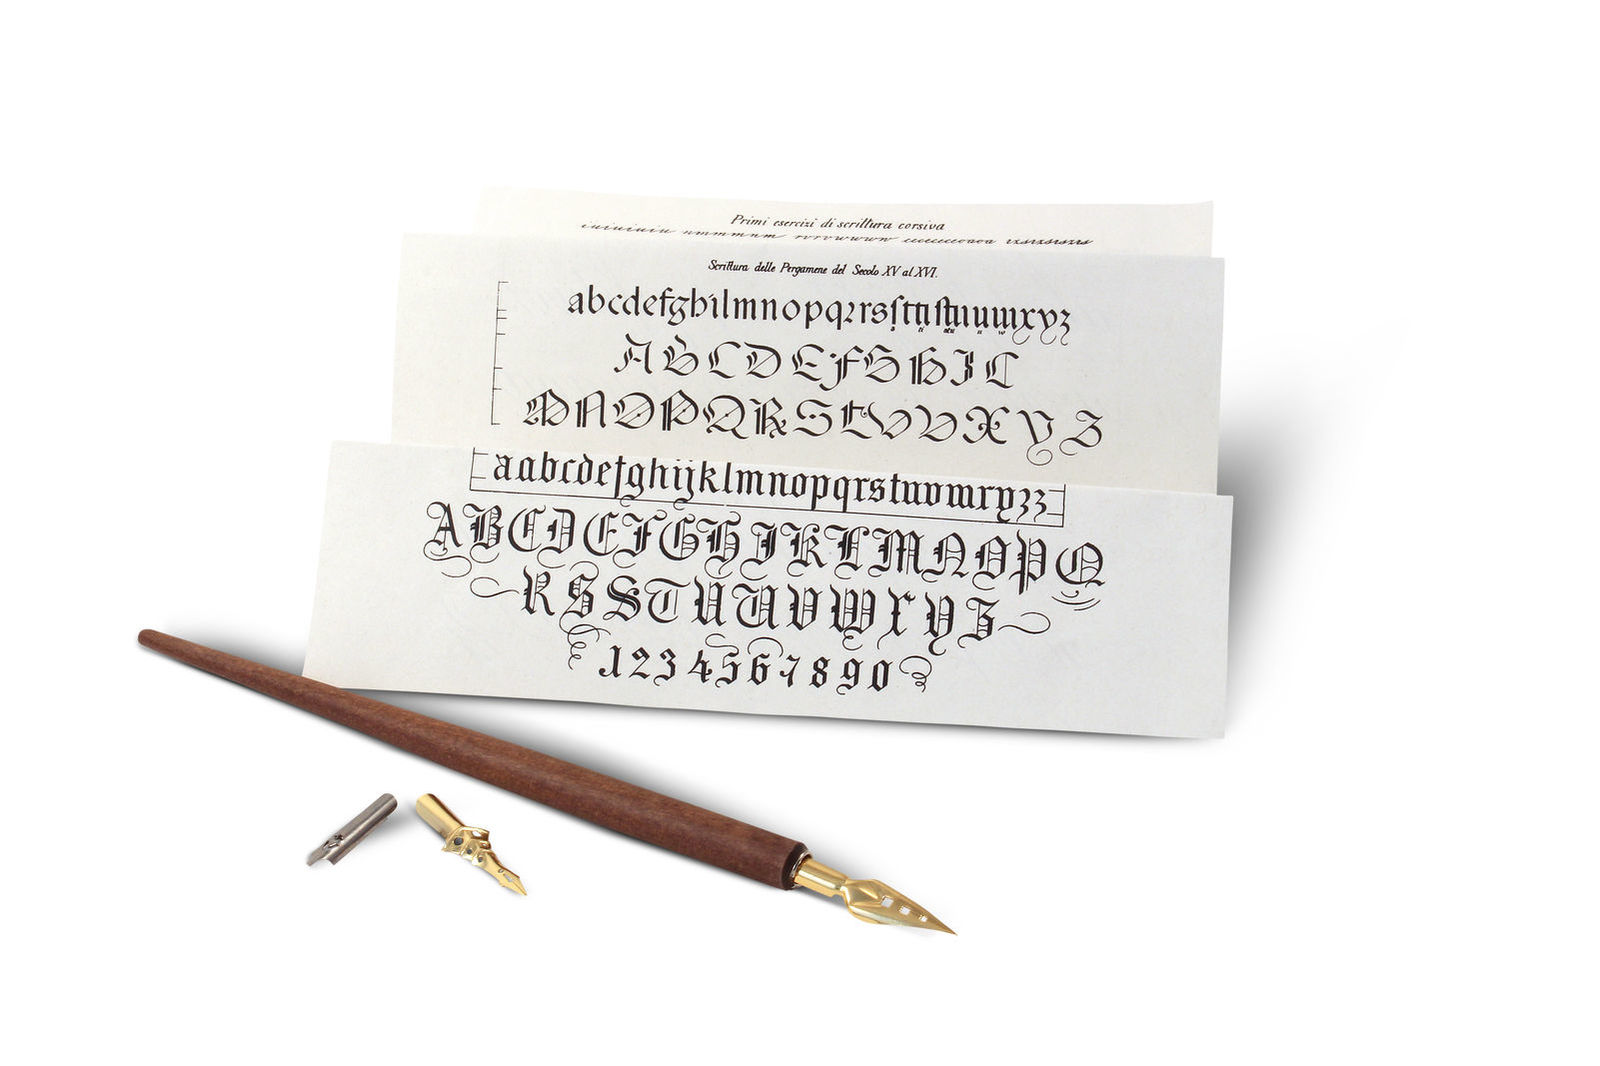 Primi esercizi di scrittura corsiva
Scrittura delle Pergamene del Secolo XV al XVI.
abcdefghilmnopqrrsſttiſtuuwxyz
ABCDEFGHIL
MNOPQRSTVVXYZ
aabcdefghijklmnopqrstuvwxyzz
ABCDEFGHIJKLMNOPQ
RSSTUUVWXYZ
1234567890